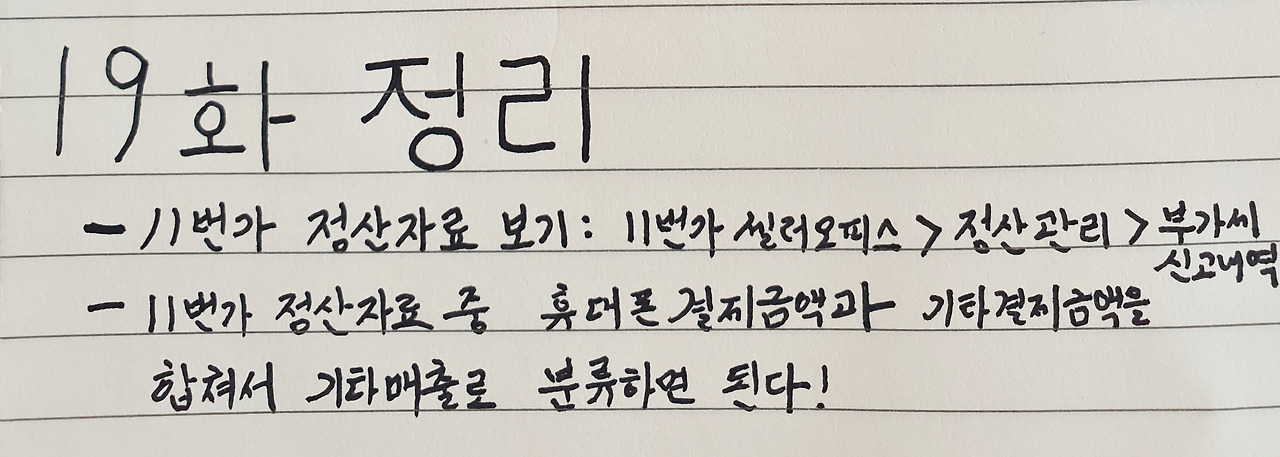 19화 정리
- 11번가 정산자료 보기: 11번가 셀러오피스 > 정산관리 > 부가세
신고내역
- 11번가 정산자료 중 휴대폰결제금액과 기타결제금액을
합쳐서 기타매출로 분류하면 된다!